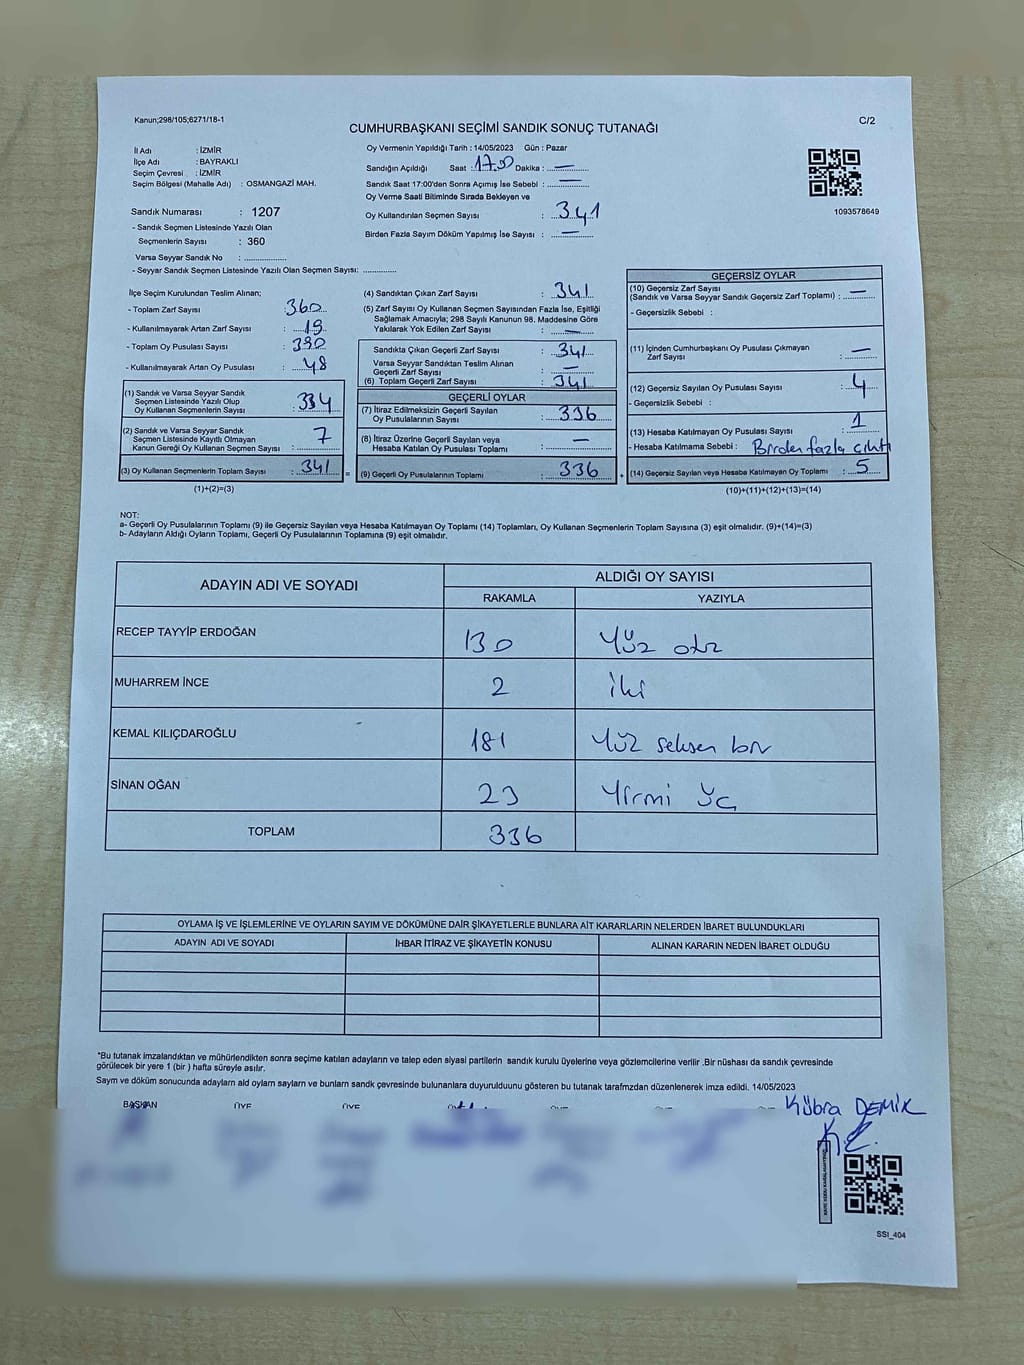 Kanun;298/105;6271/18-1
C/2
CUMHURBAŞKANI SEÇİMİ SANDIK SONUÇ TUTANAĞI
İl Adı : İZMİR
İlçe Adı : BAYRAKLI
Seçim Çevresi : İZMİR
Seçim Bölgesi (Mahalle Adı) : OSMANGAZİ MAH.
Sandık Numarası : 1207
- Sandık Seçmen Listesinde Yazılı Olan
Seçmenlerin Sayısı : 360
Varsa Seyyar Sandık No :
- Seyyar Sandık Seçmen Listesinde Yazılı Olan Seçmen Sayısı:
Oy Vermenin Yapıldığı Tarih : 14/05/2023 Gün : Pazar
Sandığın Açıldığı Saat : 17.00 Dakika : —
Sandık Saat 17:00'den Sonra Açımış İse Sebebi : —
Oy Verme Saati Bitiminde Sırada Bekleyen ve
Oy Kullandırılan Seçmen Sayısı : 341
Birden Fazla Sayım Döküm Yapılmış İse Sayısı : —
1093578649
İlçe Seçim Kurulundan Teslim Alınan;
- Toplam Zarf Sayısı : 360
- Kullanılmayarak Artan Zarf Sayısı : 19
- Toplam Oy Pusulası Sayısı : 390
- Kullanılmayarak Artan Oy Pusulası : 48
(1) Sandık ve Varsa Seyyar Sandık
Seçmen Listesinde Yazılı Olup
Oy Kullanan Seçmenlerin Sayısı : 334
(2) Sandık ve Varsa Seyyar Sandık
Seçmen Listesinde Kayıtlı Olmayan
Kanun Gereği Oy Kullanan Seçmen Sayısı : 7
(3) Oy Kullanan Seçmenlerin Toplam Sayısı : 341 =
(1)+(2)=(3)
(4) Sandıktan Çıkan Zarf Sayısı : 341
(5) Zarf Sayısı Oy Kullanan Seçmen Sayısından Fazla İse, Eşitliği
Sağlamak Amacıyla; 298 Sayılı Kanunun 98. Maddesine Göre
Yakılarak Yok Edilen Zarf Sayısı : —
Sandıkta Çıkan Geçerli Zarf Sayısı : 341
Varsa Seyyar Sandıktan Teslim Alınan
Geçerli Zarf Sayısı : —
(6) Toplam Geçerli Zarf Sayısı : 341
GEÇERLİ OYLAR
(7) İtiraz Edilmeksizin Geçerli Sayılan
Oy Pusulalarının Sayısı : 336
(8) İtiraz Üzerine Geçerli Sayılan veya
Hesaba Katılan Oy Pusulası Toplamı : —
(9) Geçerli Oy Pusulalarının Toplamı : 336 +
GEÇERSİZ OYLAR
(10) Geçersiz Zarf Sayısı
(Sandık ve Varsa Seyyar Sandık Geçersiz Zarf Toplamı) : —
- Geçersizlik Sebebi :
(11) İçinden Cumhurbaşkanı Oy Pusulası Çıkmayan
Zarf Sayısı : —
(12) Geçersiz Sayılan Oy Pusulası Sayısı : 4
- Geçersizlik Sebebi :
(13) Hesaba Katılmayan Oy Pusulası Sayısı : 1
- Hesaba Katılmama Sebebi : Birden fazla çıktı
(14) Geçersiz Sayılan veya Hesaba Katılmayan Oy Toplamı : 5
(10)+(11)+(12)+(13)=(14)
NOT:
a- Geçerli Oy Pusulalarının Toplamı (9) ile Geçersiz Sayılan veya Hesaba Katılmayan Oy Toplamı (14) Toplamları, Oy Kullanan Seçmenlerin Toplam Sayısına (3) eşit olmalıdır. (9)+(14)=(3)
b- Adayların Aldığı Oyların Toplamı, Geçerli Oy Pusulalarının Toplamına (9) eşit olmalıdır.
ADAYIN ADI VE SOYADI
ALDIĞI OY SAYISI
RAKAMLA YAZIYLA
RECEP TAYYİP ERDOĞAN 130 Yüz otuz
MUHARREM İNCE 2 İki
KEMAL KILIÇDAROĞLU 181 Yüz seksen bir
SİNAN OĞAN 23 Yirmi üç
TOPLAM 336
OYLAMA İŞ VE İŞLEMLERİNE VE OYLARIN SAYIM VE DÖKÜMÜNE DAİR ŞİKAYETLERLE BUNLARA AİT KARARLARIN NELERDEN İBARET BULUNDUKLARI
ADAYIN ADI VE SOYADI İHBAR İTİRAZ VE ŞİKAYETİN KONUSU ALINAN KARARIN NEDEN İBARET OLDUĞU
*Bu tutanak imzalandıktan ve mühürlendikten sonra seçime katılan adayların ve talep eden siyasi partilerin sandık kurulu üyelerine veya gözlemcilerine verilir .Bir nüshası da sandık çevresinde
görülecek bir yere 1 (bir ) hafta süreyle asılır.
Saym ve döküm sonucunda adaylarn ald oylarn saylarn ve bunlarn sandk çevresinde bulunanlara duyurulduunu gösteren bu tutanak tarafmzdan düzenlenerek imza edildi. 14/05/2023
BAŞKAN ÜYE ÜYE
Kübra DEMİR
SSI_404